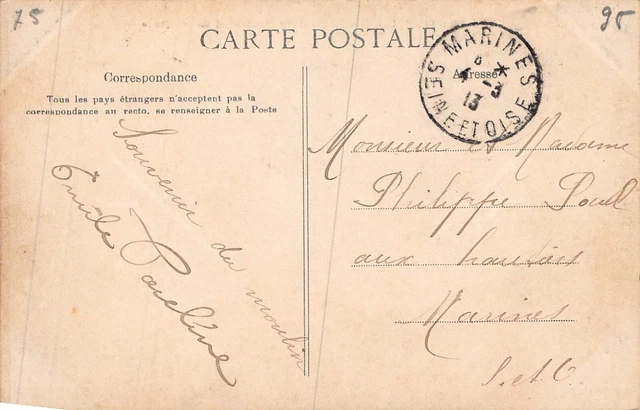 75
95
CARTE POSTALE
Correspondance
Tous les pays étrangers n'acceptent pas la
correspondance au recto, se renseigner à la Poste
Adresse
MARINES
4 - 3
13
SEINE ET OISE
Souvenir du moulin
Emile
Monsieur et Madame
Philippe
aux
Marines
S. et O.